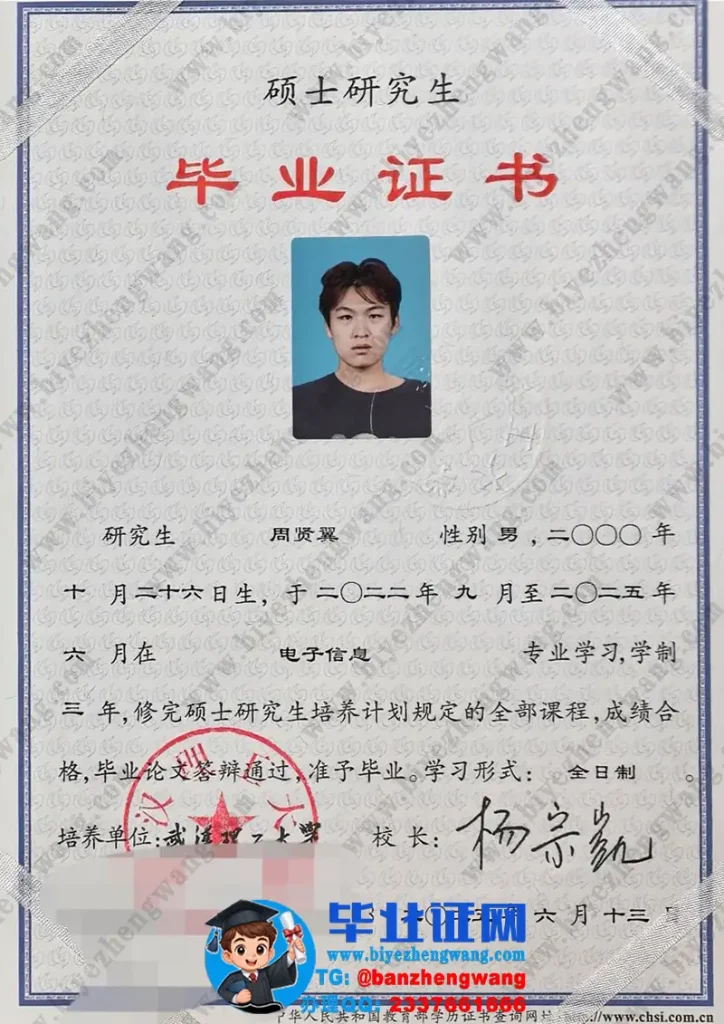 硕士研究生
毕业证书
研究生 周贤翼 性别 男 , 二〇〇〇 年
十 月 二十六 日生, 于 二〇二二 年 九 月至 二〇二五 年
六 月在 电子信息 专业学习,学制
三 年,修完硕士研究生培养计划规定的全部课程,成绩合
格,毕业论文答辩通过,准予毕业。学习形式: 全日制 。
培养单位:武汉理工大学 校 长: 杨宗凯
六 月 十三 日
毕业证网
www.biyezhengwang.com
TG: @banzhengwang
办理QQ: 2337661666
中华人民共和国教育部学历证书查询网址:http://www.chsi.com.cn